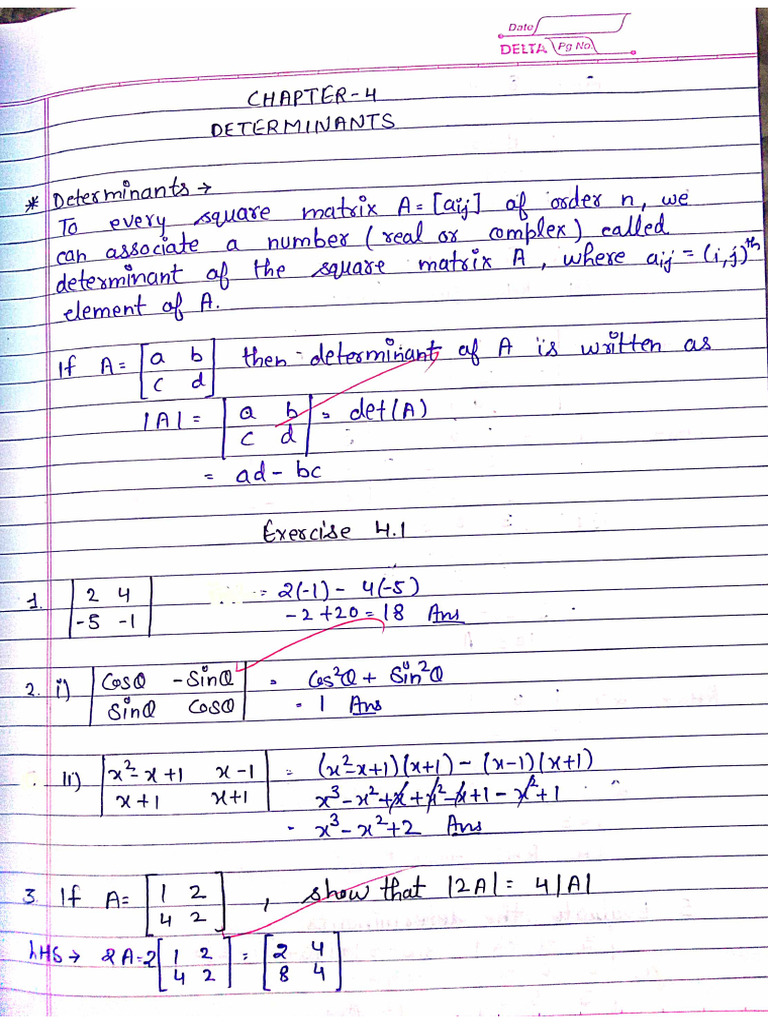 Date
DELTA Pg No.
CHAPTER-4
DETERMINANTS
* Determinants →
To every square matrix A = [aij] of order n, we
can associate a number (real or complex) called
determinant of the square matrix A, where aij = (i,j)th
element of A.
If A = [a b] then determinant of A is written as
[c d]
|A| = |a b| = det(A)
|c d|
= ad - bc
Exercise 4.1
1. |2 4| = 2(-1) - 4(-5)
|-5 -1| -2+20 = 18 Ans
2. i) |Cosθ -Sinθ| = Cos²θ + Sin²θ
|Sinθ Cosθ| = 1 Ans
ii) |x²-x+1 x-1| = (x²-x+1)(x+1) - (x-1)(x+1)
|x+1 x+1| x³-x²+x+x²-x+1-x²+1
= x³-x²+2 Ans
3. If A = [1 2], show that |2A| = 4|A|
[4 2]
LHS → 2A=2[1 2] = [2 4]
[4 2] [8 4]